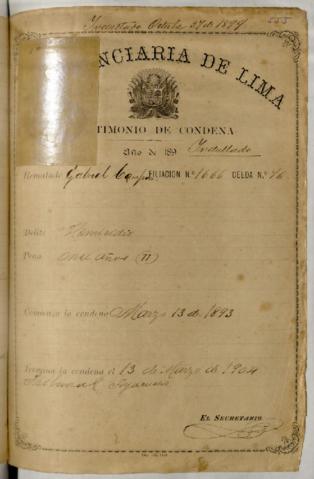 Indultado Octubre 27 de 1899
NCIARIA DE LIMA
TIMONIO DE CONDENA
Año de 189
Indultado
Rematado Gabriel FILIACION N.º 1666 CELDA N.º 76
Delito Homicidio
Pena once años (11)
Comienza la condena Marzo 13 de 1893
Termina la condena el 13 de Marzo de 1904
Tribunal Ayacucho
EL SECRETARIO